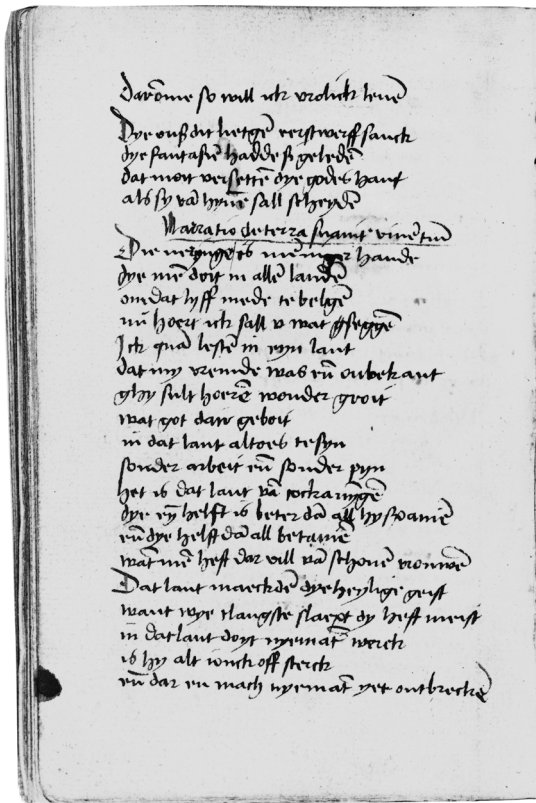 Darōme so will ick vrolick leuē
Dye onß dit lietgē eerstwerff sanck
dye fantasiē hadde sy geledē
dat moit versettē dye godes hant
als sy vā hynē sall scheydē
Narratio de terra suauiter viuentiū
Die neryngē is mēniger hande
dye mē doit in allē landē
om dat lyff mede te belgē
nū hoert ick sall v wat gseggē
Ick quā lestē in eyn lant
dat my vremde was eñ onbekant
ghy sult hoerē wonder groit
wat got dair geboit
in dat lant altoes te syn
sonder arbeit eñ sonder pyn
het is dat lant vā cockanyngē
dye eyn helfft is beter dā all hyspaniē
eñ dye helft dā all betaniē
want mē heft dar vill vā schonē vrouwē
Dat lant maeckdē dye heylige geist
want wye tlangste slaept dy heft meist
in dat lant doyt nyemāt werck
is hy alt ionck off sterck
eñ dar en mach nyemāt yet ontbreckē